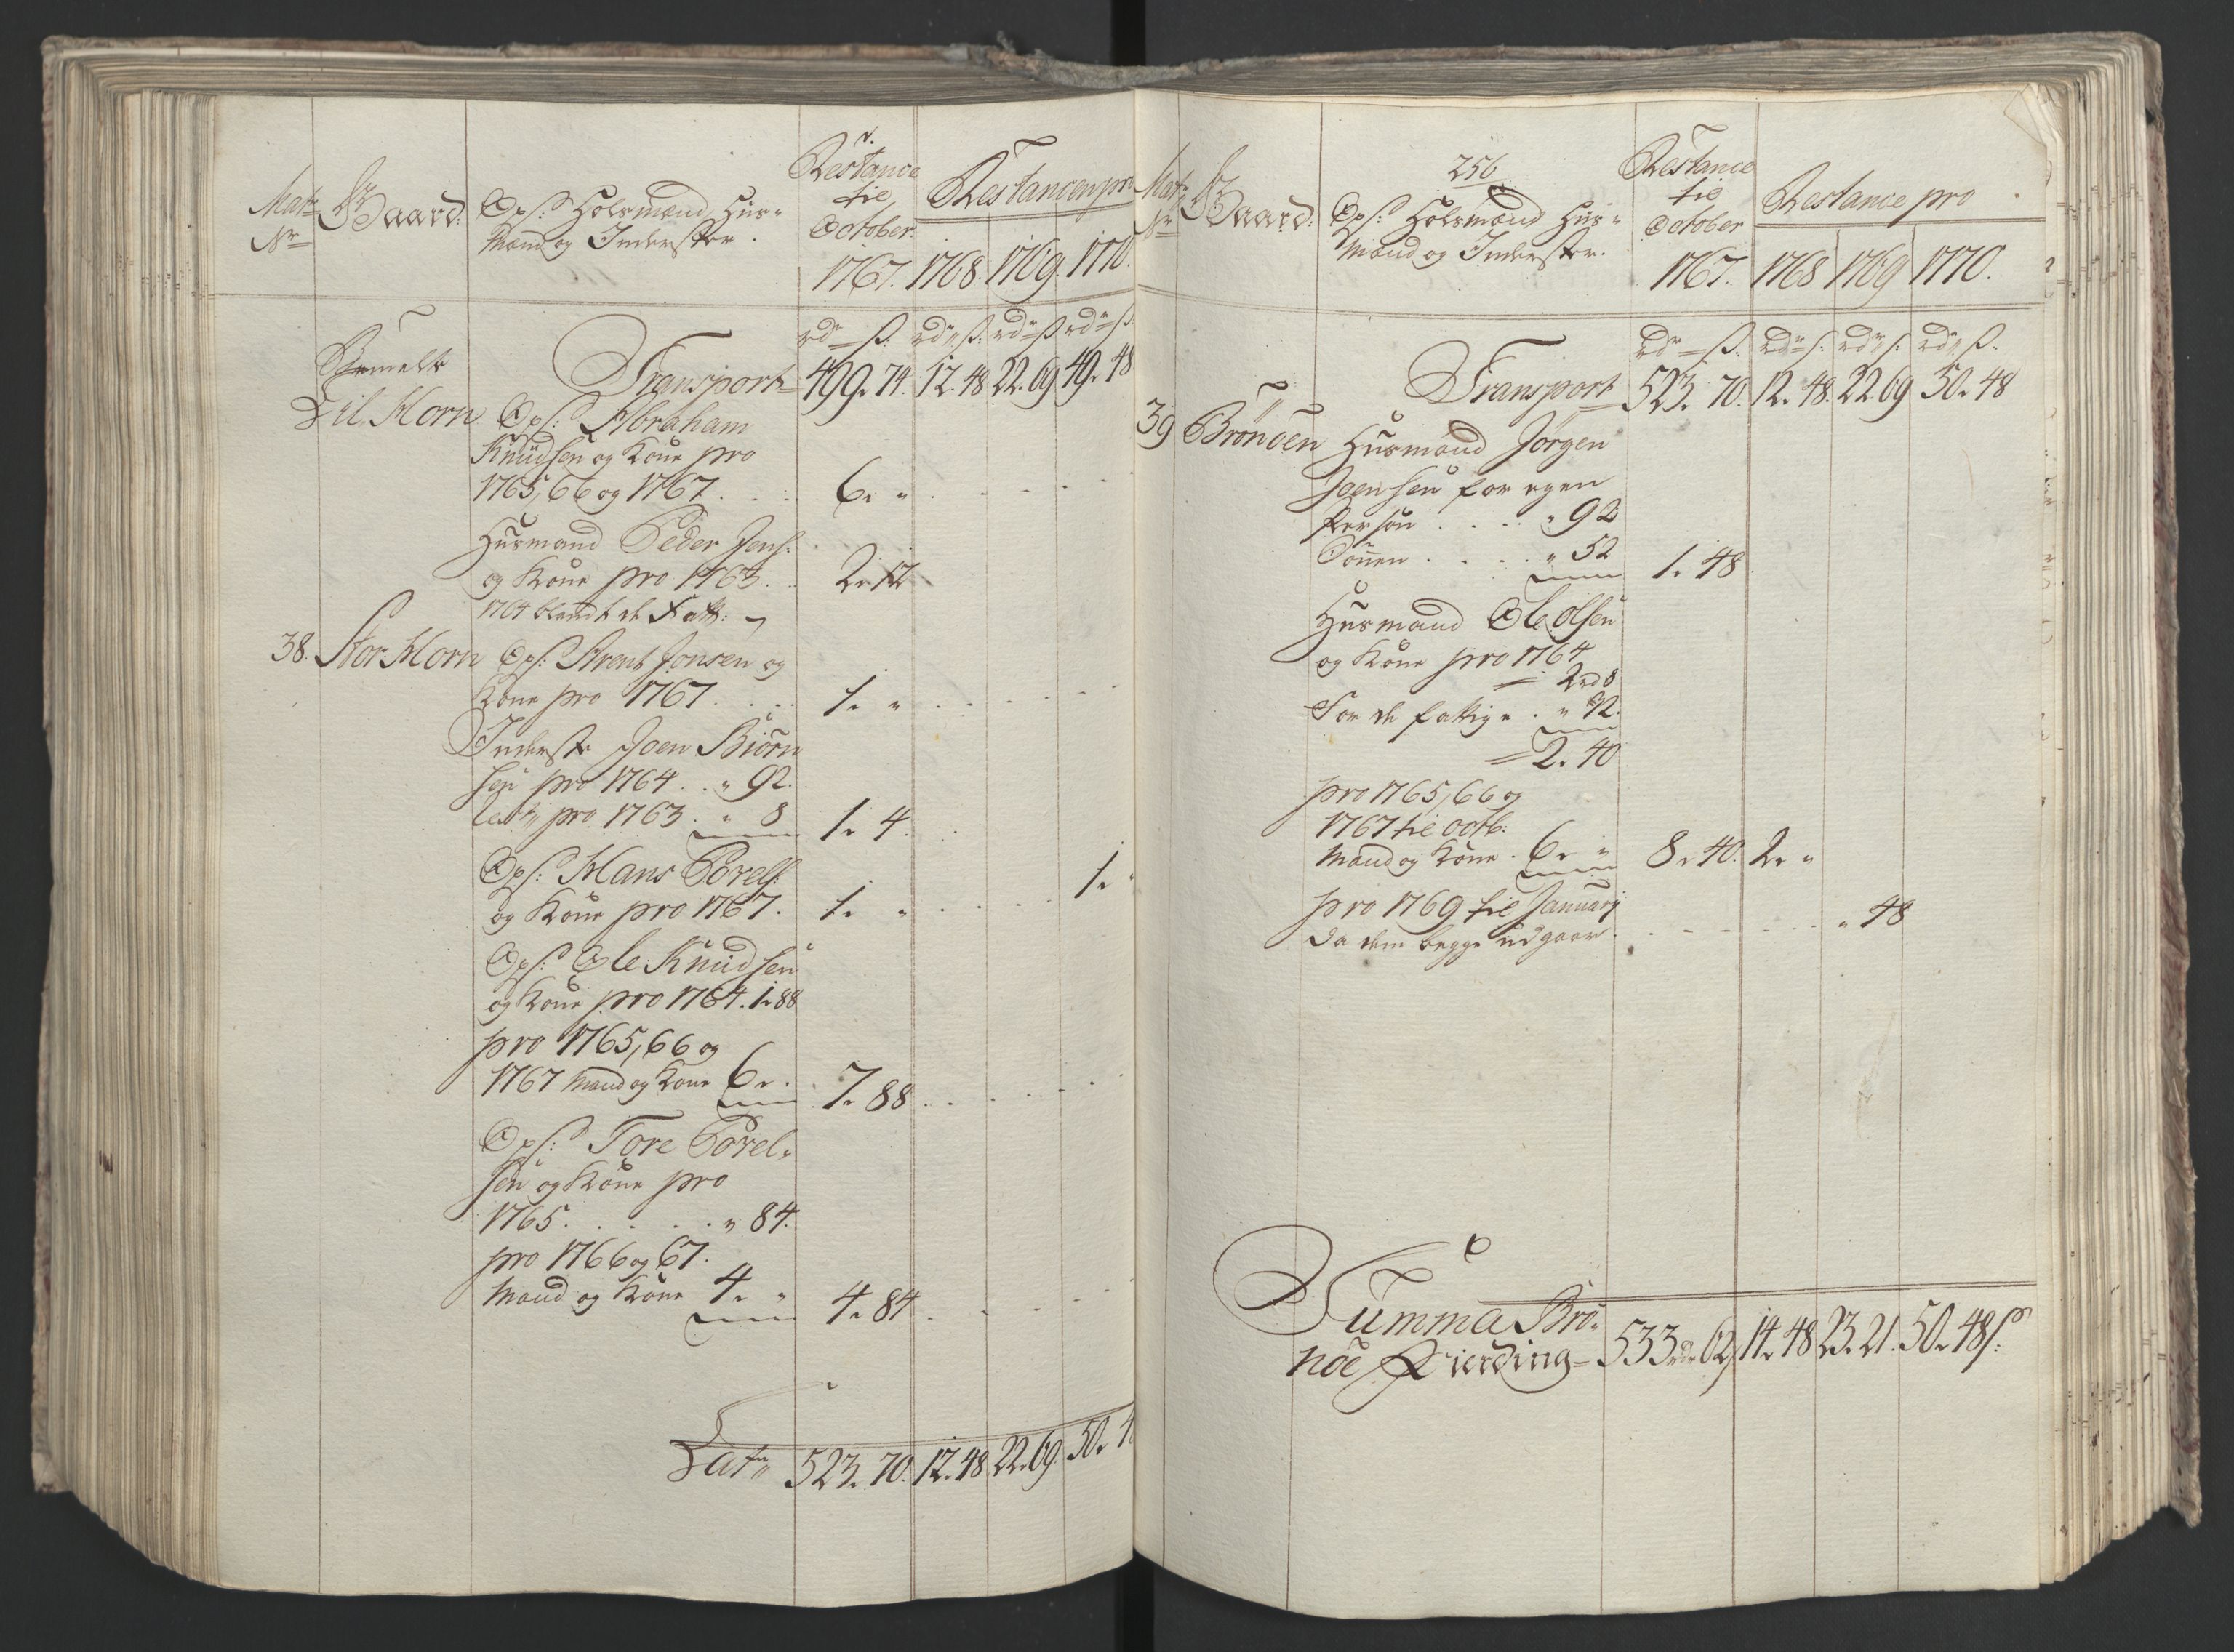 Matr: Nr
Gaard:
Ops: Holsmænd Huus=
Mænd og Inderster.
Restance
til
October.
1767.
Restancen pro
1768. 1769. 1770.
rdr ß. rdr ß: rdr ß rdr ß.
Transport 499. 74. 12. 48 22. 69 49. 48
Bemelte
Lil. Horn
Ops: Abraham
Knudsen og Kone pro
1765, 66 og 1767. . . 6. "
Husmand Peder Jens:
og Kone pro 1763. . 2. 12
1764 blandt de Fatt:
38. Stor Horn
Ops: Arent Jonsen og
Kone pro 1767. . . . 1. "
Inderste Joen Biørn
sen pro 1764. . " 92.
pro 1763. " 8 1. 4.
Ops: Hans Povels:
og Kone pro 1767. 1. " 1.
Ops: Ole Knudsen
og Kone pro 1764. 1. 88
pro 1765, 66 og
1767 Mand og Kone 6. . 7. 88
Ops: Tore Povel=
sen og Kone pro
1765. . . . . " 84.
pro 1766 og 67.
Mand og Kone 4. " 4. 84
Lat" 523. 70. 12. 48 22. 69 50. 4
Matr Nr
Gaard:
256
Ops: Holsmænd Huus=
Mænd og Inderster.
Restance
til
October
1767.
Restance pro
1768 1769 1770.
rdr ß. rdr ß: rdr ß: rdr ß.
Transport 523. 70. 12. 48. 22. 69 50. 48
39 Brönöen
Husmand Jørgen
Joensen for egen
Person . . . . " 92
Sønnen . . . . " 52 1. 48
Husmand Ole Olsen
og Kone pro 1764
2 rd 8
For de fattige . " 32.
2. 40
pro 1765, 66 og
1767 til Octb:
Mand og Kone . 6. " 8. 40. 2. "
pro 1769 til Januarij
da dem begge udgaar. " 48
Summa Brö=
nöe Fierding 533 rdr 62 14. 48 23. 21. 50. 48 ß: